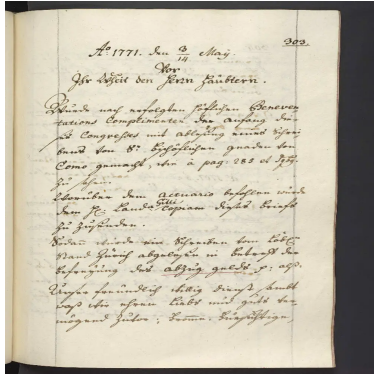 303.
Aº 1771. den 3/14 Maÿ.
Vor
Ihr Wheit den Herrn Häubtern.
Wurde nach erfolgten höflichen Beneven-
tations Complimenten der anfang die-
ses Congresses mit ablesung eines Schrei-
bens von Sr bischöflichen gnaden von
Como gemacht, wie à pag: 285 et
zu sehen.
Worüber dem acenario befohlen wurde
dem Landa copiam dieses briefs
zu zusenden.
Sodan wurde ein Schreiben vom Lobl.
Stand Zürich abgelesen in betreff der
befreyung des abzug gelds
Unser freundlich willig dienst samt
was wir ehren liebs und guts ver-
mögend zuvor;